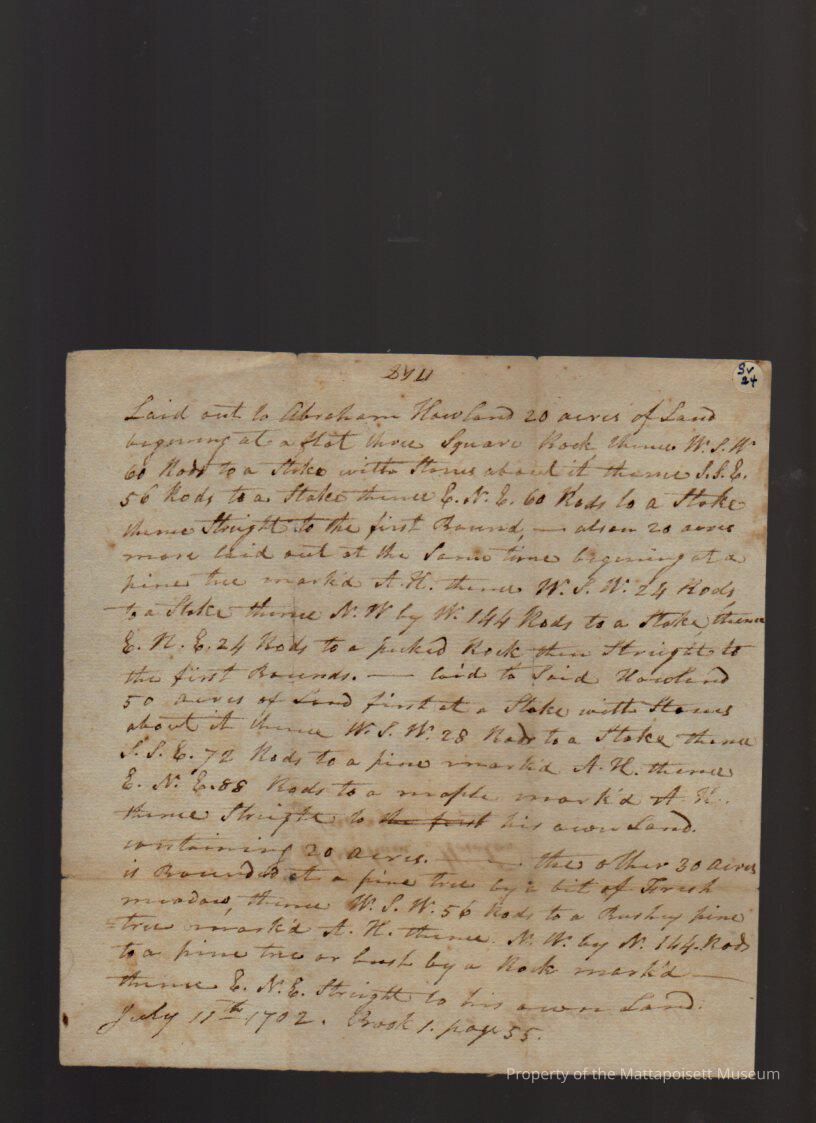 Sv
24
Laid out to Abraham Howland 20 acres of Land
begining at a flat three Square Rock, thence W. S. W
60 Rods to a Stake with Stones about it thence S.S.E.
56 Rods to a Stake thence E. N. E. 60 Rods to a Stake
thence Streight to the first Bound, — also 20 acres
more laid out at the Same time begining at a
pine tree mark'd A.H. thence W. S. W. 24 Rods
to a Stake thence N. W by W. 144 Rods to a Stake thence
E. N. E. 24 Rods to a picked Rock then Streight to
the first Bounds. — laid to Said Howland
50 acres of Land first at a Stake with Stones
about it thence W. S. W. 28 Rods to a Stake thence
S. S. E. 72 Rods to a pine mark'd A. H. thence
E. N. E. 88 Rods to a maple mark'd A H.
thence Streight to the first his own Land.
containing 20 acres. — the other 30 acres
is Bounded at a pine tree by a bit of Fresh
meadow, thence W. S. W. 56 Rods to a Bushey pine
tree mark'd A. H. thence N. W. by N. 144 Rods
to a pine tree or bush by a Rock mark'd —
thence E. N. E. Streight to his own Land.
July 11th 1702. Book 1. page 55.
Property of the Mattapoisett Museum